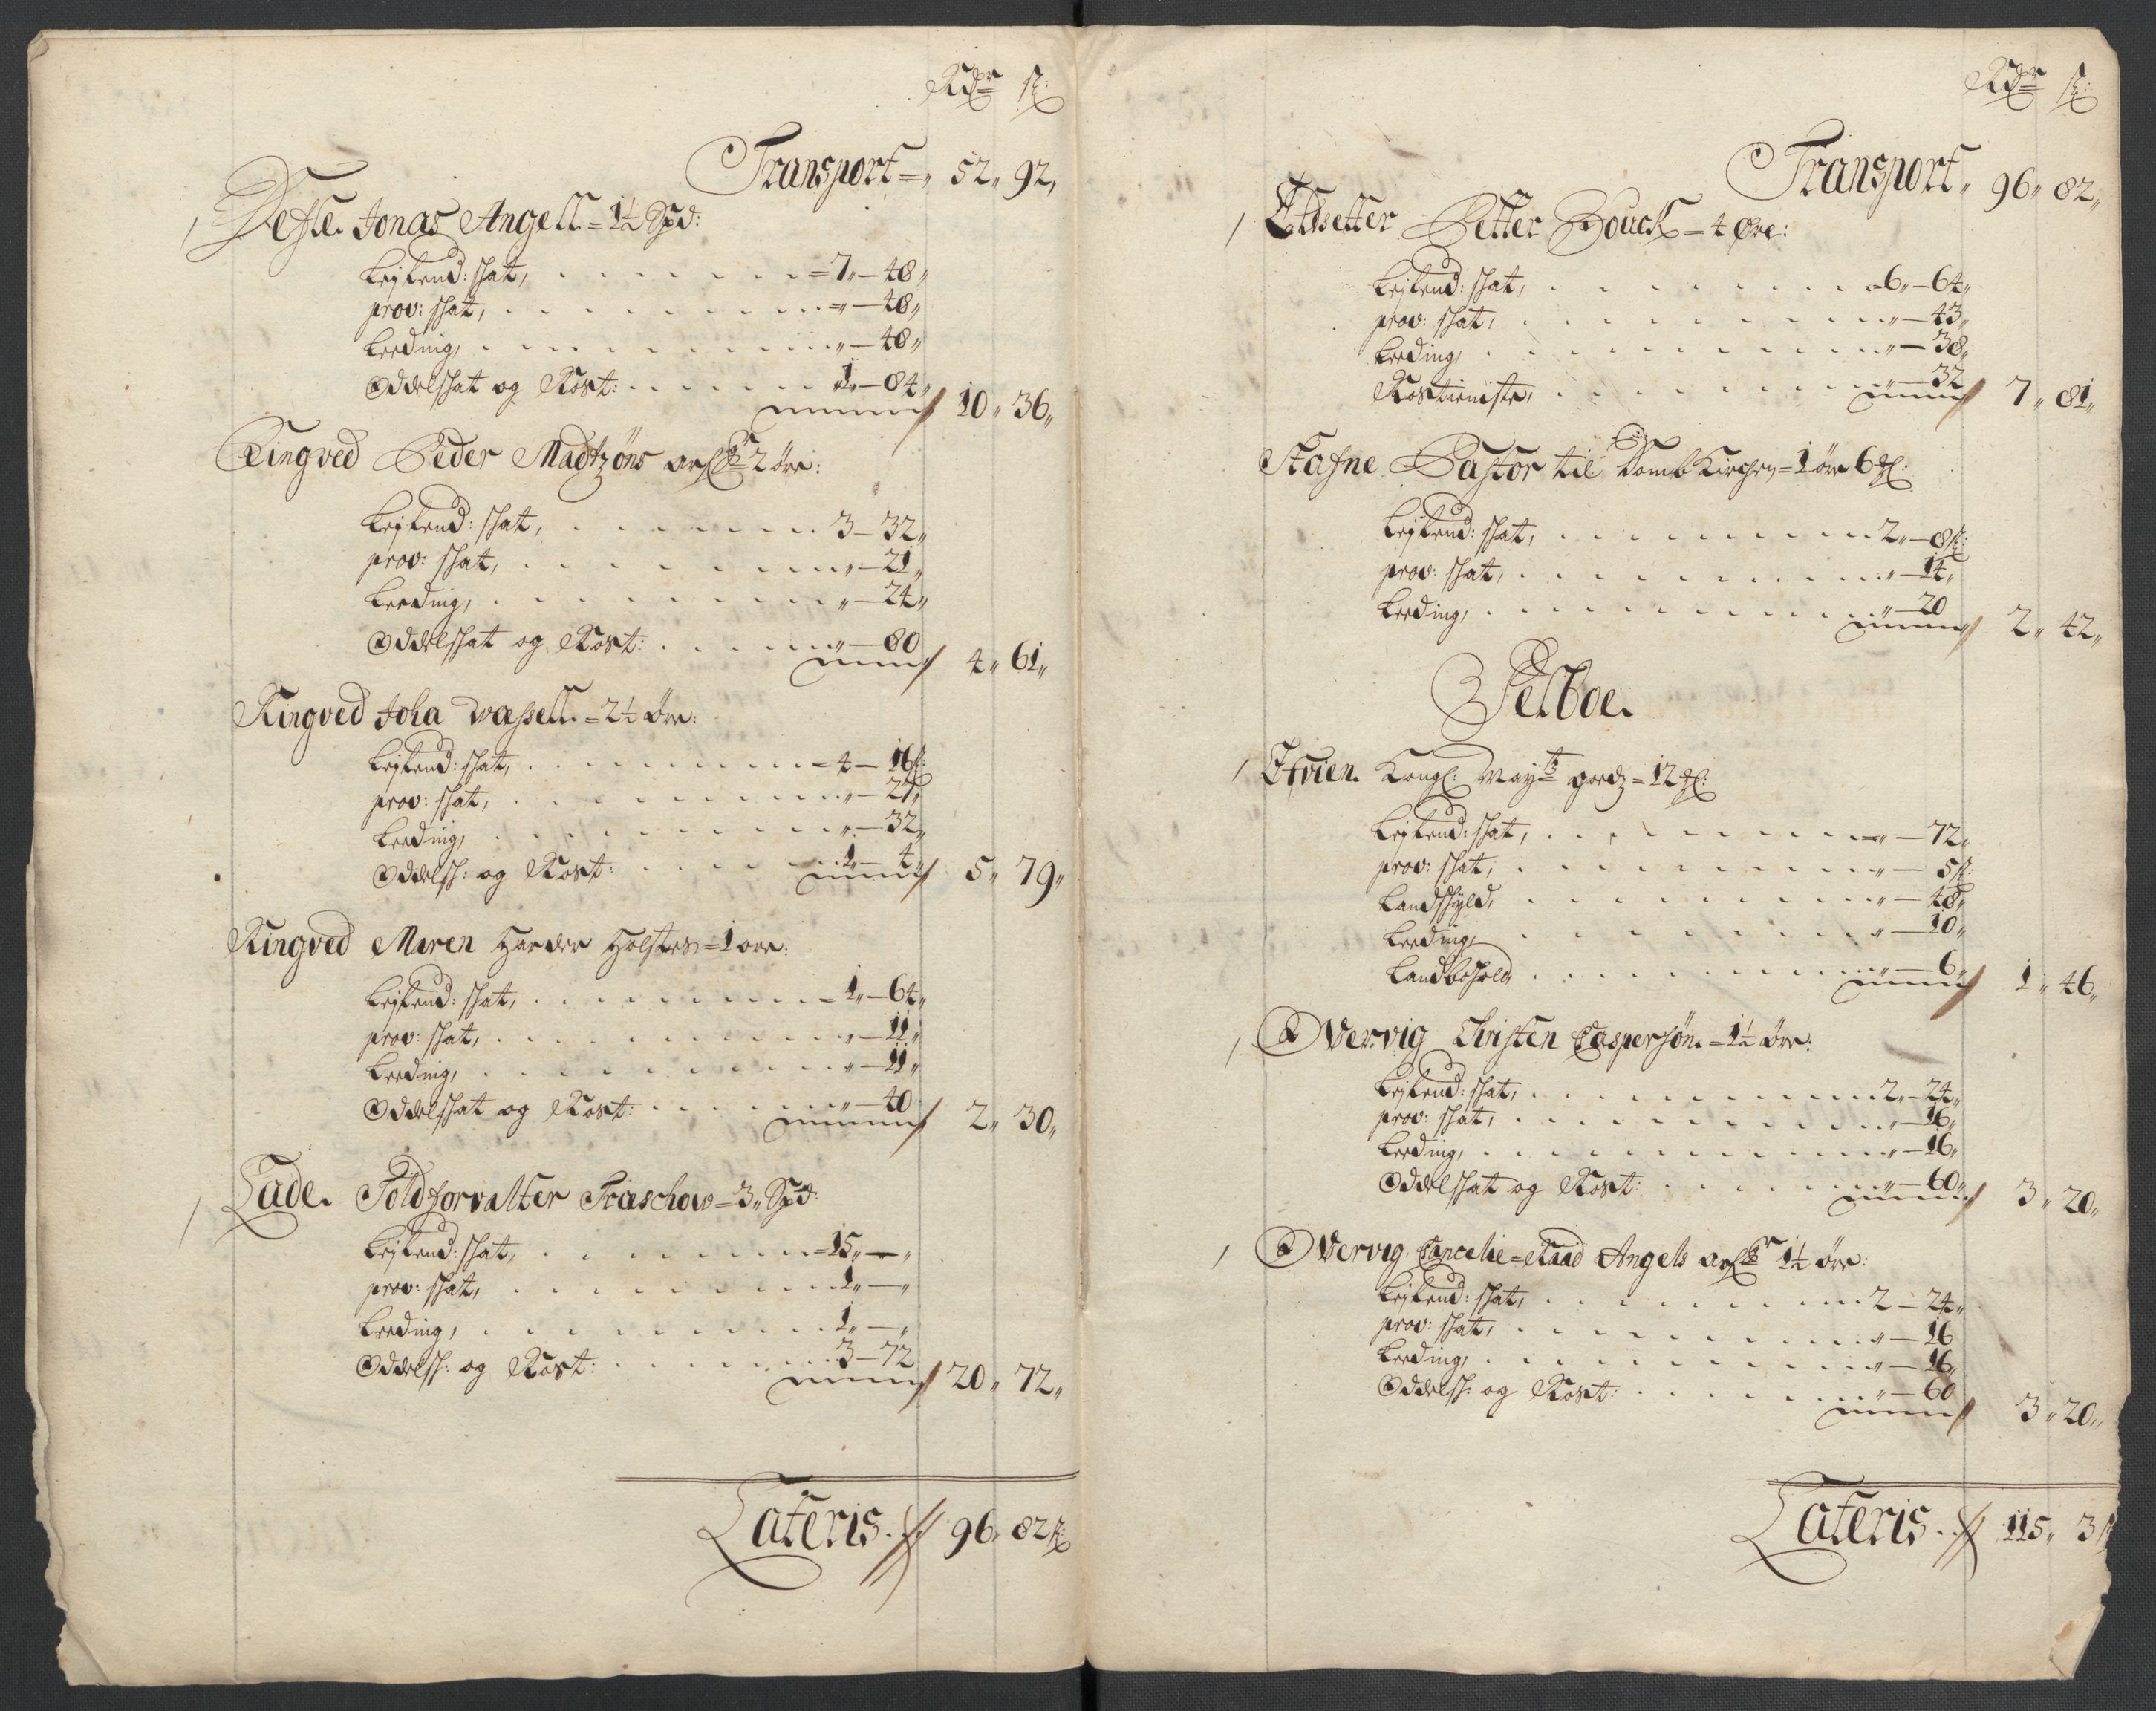 Rdr ß
Transport = 52 „ 92 „
Jonas Angell = 1½ Spd:
Leylend: skat, 7 „ — 48 „
prov: skat, „ — 48 „
Leeding, „ — 48 „
Oddelskat og Rost: 1 „ — 84 „ 10 „ 36 „
Ringved Peder Madtzøns arf: 2 øre:
Leylend: skat, 3 — 32 „
prov: skat, „ — 21 „
Leeding, „ — 24 „
Oddelskat og Rost: „ — 80 4 „ 61 „
Ringved Joha Wessell = 2½ øre:
Leylend: skat, 4 — 16 ß:
prov: skat, „ — 27 „
Leeding, „ — 32 „
Oddelsk: og Rost: 1 „ — 4 „ 5 „ 79 „
Ringved Maren Harder Holstes = 1 øre:
Leylend: skat, 1 „ — 64 „
prov: skat, „ — 11 „
Leeding, „ — 11 „
Oddelskat og Rost: „ — 40 2 „ 30 „
Lade. Toldforvalter Træschow = 3 „ Spd:
Leylend: skat, 15 „ — „
prov: skat, 1 „ — „
Leeding, 1 „ — „
Oddelsk: og Rost: 3 — 72 20 „ 72 „
Lateris 96 „ 82 ß:
Rdr ß
Transport „ 96 „ 82 „
Petter Bouck = 4 Øre:
Leylend: skat, 6 „ — 64 „
prov: skat, „ — 43 „
Leeding, „ — 38 „
Rostieniste, „ — 32 7 „ 81 „
Stafne Pastor til Domb Kirchen = 1 øre 6 ꝑl:
Leylend: skat, 2 „ — 8 ß:
prov: skat, „ — 14 „
Leeding, „ — 20 2 „ 42 „
Selboe.
Kongl: Mayts godz = 12 ꝑl:
Leylend: skat, „ — 72 „
prov: skat, „ — 5 ß:
Landskyld, „ — 48 „
Leeding, „ — 10 „
Landbohold „ — 6 „ 1 „ 46 „
Overvig Christen Caspersøn = 1½ øre:
Leylend: skat, 2 „ — 24 „
prov: skat, „ — 16 „
Leeding, „ — 16 „
Oddelskat og Rost: „ — 60 „ 3 „ 20 „
Overvig Cancelie = Raad Angels arf: 1½ øre:
Leylend: skat, 2 — 24 „
prov: skat, „ — 16
Leeding, „ — 16 „
Oddelsk: og Rost: „ — 60 3 „ 20 „
Lateris 115 „ 3 ß